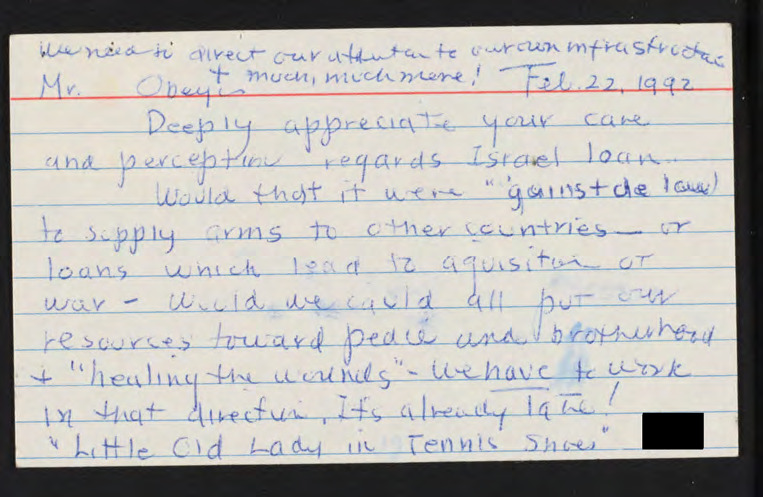 We need to direct our attention to our own infrastructure
+ much, much more! Feb. 22, 1992
Mr. Obey
Deeply appreciate your care
and perception regards Israel loan.
Would that it were "'gainst de law"
to supply arms to other countries — or
loans which lead to aquisition or
war - Would we could all put our
resources toward peace and brotherhood
+ "healing the wounds" - We have to work
in that direction. It's already late!
"Little Old Lady in Tennis Shoes"